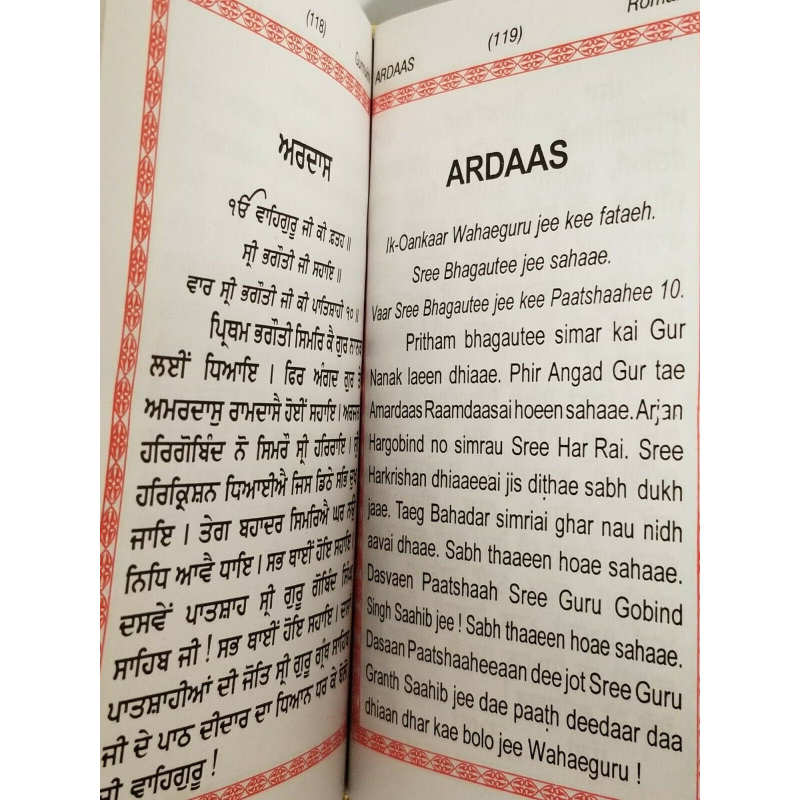 (118)
ਅਰਦਾਸ
ੴ ਵਾਹਿਗੁਰੂ ਜੀ ਕੀ ਫ਼ਤਹ ॥
ਸ੍ਰੀ ਭਗੌਤੀ ਜੀ ਸਹਾਇ ॥
ਵਾਰ ਸ੍ਰੀ ਭਗੌਤੀ ਜੀ ਕੀ ਪਾਤਿਸ਼ਾਹੀ ੧੦ ॥
ਪ੍ਰਿਥਮ ਭਗੌਤੀ ਸਿਮਰਿ ਕੈ ਗੁਰ ਨਾਨਕ
ਲਈਂ ਧਿਆਇ । ਫਿਰ ਅੰਗਦ ਗੁਰ
ਅਮਰਦਾਸੁ ਰਾਮਦਾਸੈ ਹੋਈਂ ਸਹਾਇ । ਅਰਜਨ
ਹਰਿਗੋਬਿੰਦ ਨੋ ਸਿਮਰੌ ਸ੍ਰੀ ਹਰਿਰਾਇ ।
ਹਰਿਕ੍ਰਿਸ਼ਨ ਧਿਆਈਐ ਜਿਸ ਡਿਠੇ ਸਭਿ ਦੁਖ
ਜਾਇ । ਤੇਗ ਬਹਾਦਰ ਸਿਮਰਿਐ ਘਰ ਨਉ
ਨਿਧਿ ਆਵੈ ਧਾਇ । ਸਭ ਥਾਈਂ ਹੋਇ ਸਹਾਇ ।
ਦਸਵੇਂ ਪਾਤਸ਼ਾਹ ਸ੍ਰੀ ਗੁਰੂ ਗੋਬਿੰਦ ਸਿੰਘ
ਸਾਹਿਬ ਜੀ ! ਸਭ ਥਾਈਂ ਹੋਇ ਸਹਾਇ ।
ਪਾਤਸ਼ਾਹੀਆਂ ਦੀ ਜੋਤਿ ਸ੍ਰੀ ਗੁਰੂ ਗ੍ਰੰਥ ਸਾਹਿਬ
ਜੀ ਦੇ ਪਾਠ ਦੀਦਾਰ ਦਾ ਧਿਆਨ ਧਰ ਕੇ ਬੋਲੋ
ਜੀ ਵਾਹਿਗੁਰੂ !
ARDAAS (119)
ARDAAS
Ik-Oankaar Wahaeguru jee kee fataeh.
Sree Bhagautee jee sahaae.
Vaar Sree Bhagautee jee kee Paatshaahee 10.
Pritham bhagautee simar kai Gur
Nanak laeen dhiaae. Phir Angad Gur tae
Amardaas Raamdaasai hoeen sahaae. Arjan
Hargobind no simrau Sree Har Rai. Sree
Harkrishan dhiaaeeai jis diṭhae sabh dukh
jaae. Taeg Bahadar simriai ghar nau nidh
aavai dhaae. Sabh thaaeen hoae sahaae.
Dasvaen Paatshaah Sree Guru Gobind
Singh Saahib jee ! Sabh thaaeen hoae sahaae.
Dasaan Paatshaaheeaan dee jot Sree Guru
Granth Saahib jee dae paaṭh deedaar daa
dhiaan dhar kae bolo jee Wahaeguru !